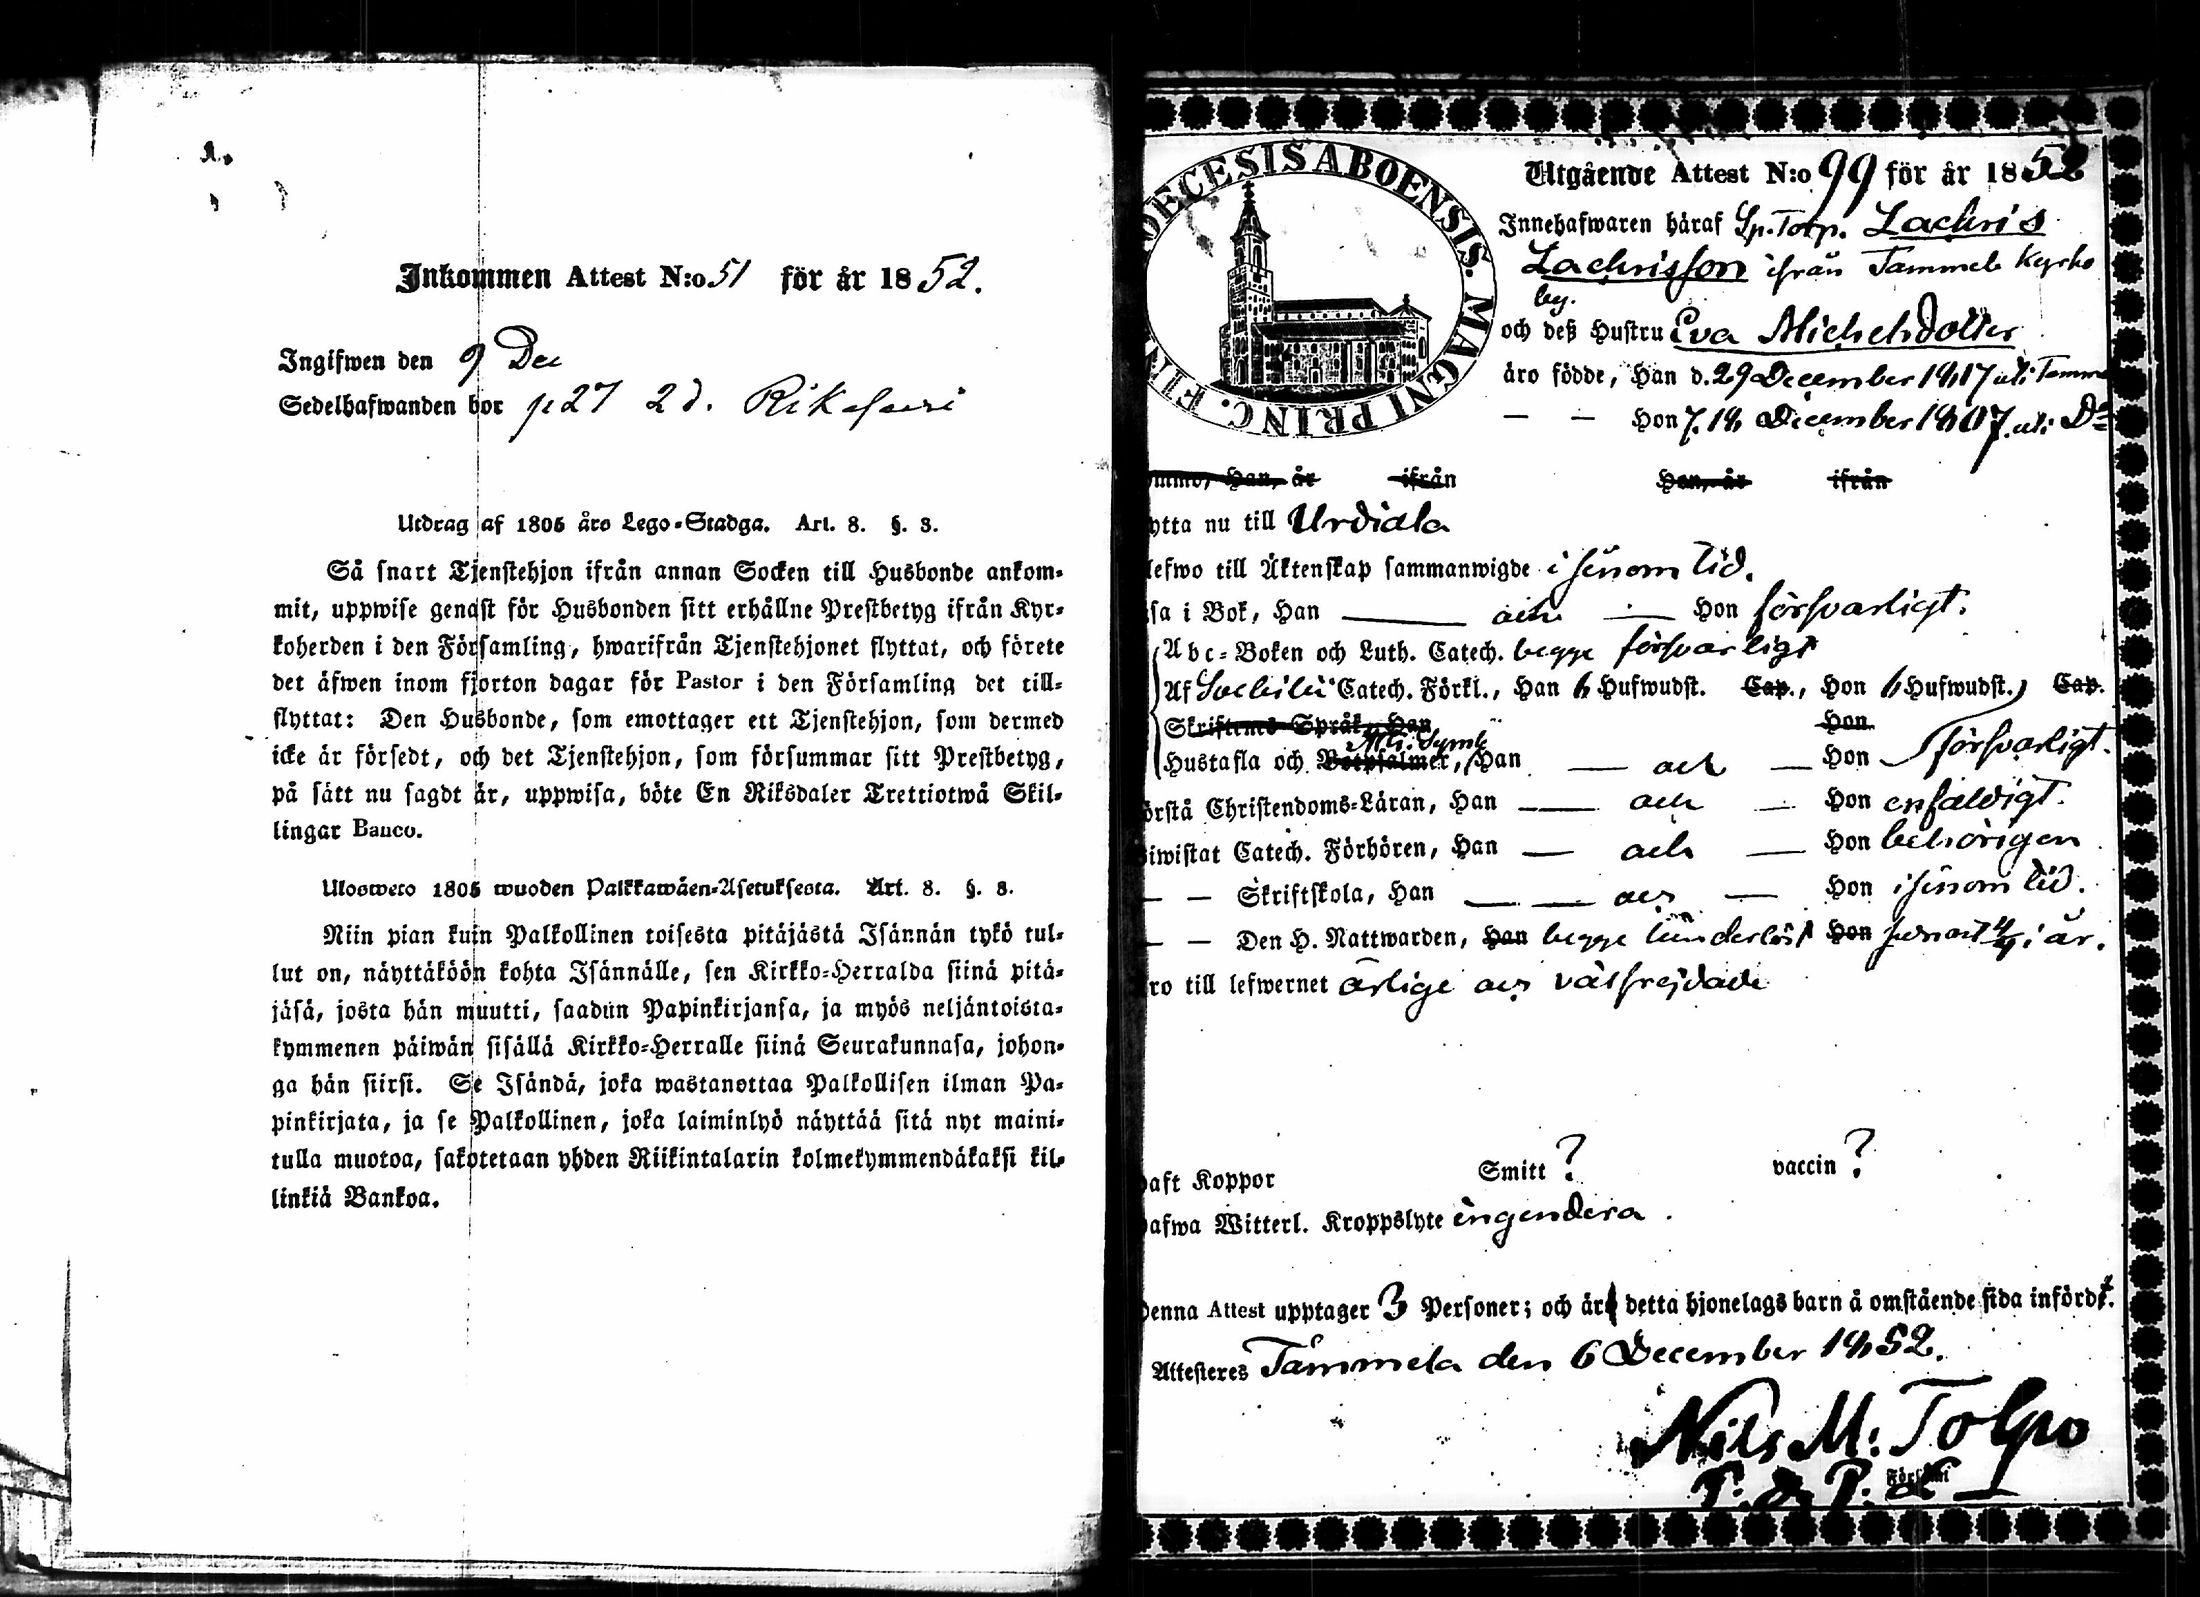 Inkommen Attest N:o 51 för år 1852.
Ingifwen den 9 Dec
Sedelhafwanden bor p 27 2 d.
Utdrag af 1805 åro Lego-Stadga. Art. 8. §. 8.
Så snart Tjenstehjon ifrån annan Socken till Husbonde ankom-
mit, uppwise genast för Husbonden sitt erhållne Prestbetyg ifrån Kyr-
koherden i den Församling, hwarifrån Tjenstehjonet flyttat, och förete
det äfwen inom fjorton dagar för Pastor i den Församling det till-
flyttat: Den Husbonde, som emottager ett Tjenstehjon, som dermed
icke är försedt, och det Tjenstehjon, som försummar sitt Prestbetyg,
på sätt nu sagdt är, uppwisa, böte En Riksdaler Trettiotwå Skil-
lingar Banco.
Uloswero 1805 wuoden Palkkawäen-Asetuksesta. Art. 8. §. 8.
Niin pian kuin Palkollinen toisesta pitäjästä Isännän tykö tul-
lut on, näyttäköön kohta Isännälle, sen Kirkko-Herralda siinä pitä-
jäsä, josta hän muutti, saadun Papinkirjansa, ja myös neljäntoista-
kymmenen päiwän sisällä Kirkko-Herralle siinä Seurakunnasa, johon-
ga hän siirsi. Se Isändä, joka wastanottaa Palkollisen ilman Pa-
pinkirjata, ja se Palkollinen, joka laiminlyö näyttää sitä nyt maini-
tulla muotoa, sakotetaan yhden Riikintalarin kolmekymmendäkaksi kil-
linkiä Bankoa.
DECESIS ABOENSIS. MAGNI PRINC. FI
Utgående Attest N:o 99 för år 1852
Innehafwaren häraf Sp. Torp. Zachris
Zachrisson ifrån Tammela Kyrko
by.
och deß Hustru Eva Michelsdotter
äro födde, Han d. 29 December 1817 uti Tamme
— — Hon 7. 18 December 1807. uti Do
ommo, Han, år ifrån Hon, år ifrån
ytta nu till Urdiala
lefwo till Äktenskap sammanwigde i sinom tid.
sa i Bok, Han — och — Hon försvarligt.
Abc-Boken och Luth. Catech. begge försvarligt
Af Svebilii Catech. Förkl., Han 6 Hufwudst. Cap., Hon 6 Hufwudst., Cap.
Skriftens Språk, Han Hon
Ath. Symb
Hustafla och Botpsalmer, Han — och — Hon försvarligt.
örstå Christendoms-Läran, Han — och — Hon enfaldigt.
iwistat Catech. Förhören, Han — och — Hon behörigen
— — Skriftskola, Han — — och — Hon i sinom tid.
— — Den H. Nattwarden, Han begge Hon senast i år.
ro till lefwernet ärlige och välfrejdade
aft Koppor Smitt ? vaccin ?
afwa Witterl. Kroppslyte ingendera.
Denna Attest upptager 3 Personer; och äro detta hjonelags barn å omstående sida införde.
Attesteres Tammela den 6 December 1852.
Nils M: Tolpo
P: & P: L